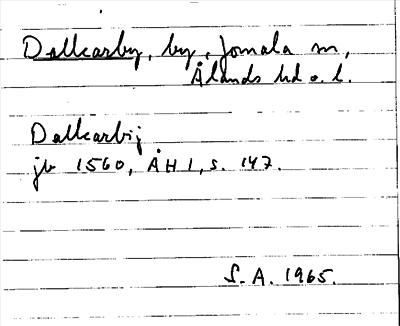 Dalkarby, by, Jomala sn,
Ålands hd o. l.
Dalkarbij
jb 1560, ÅH 1, s. 147.
S. A. 1965.